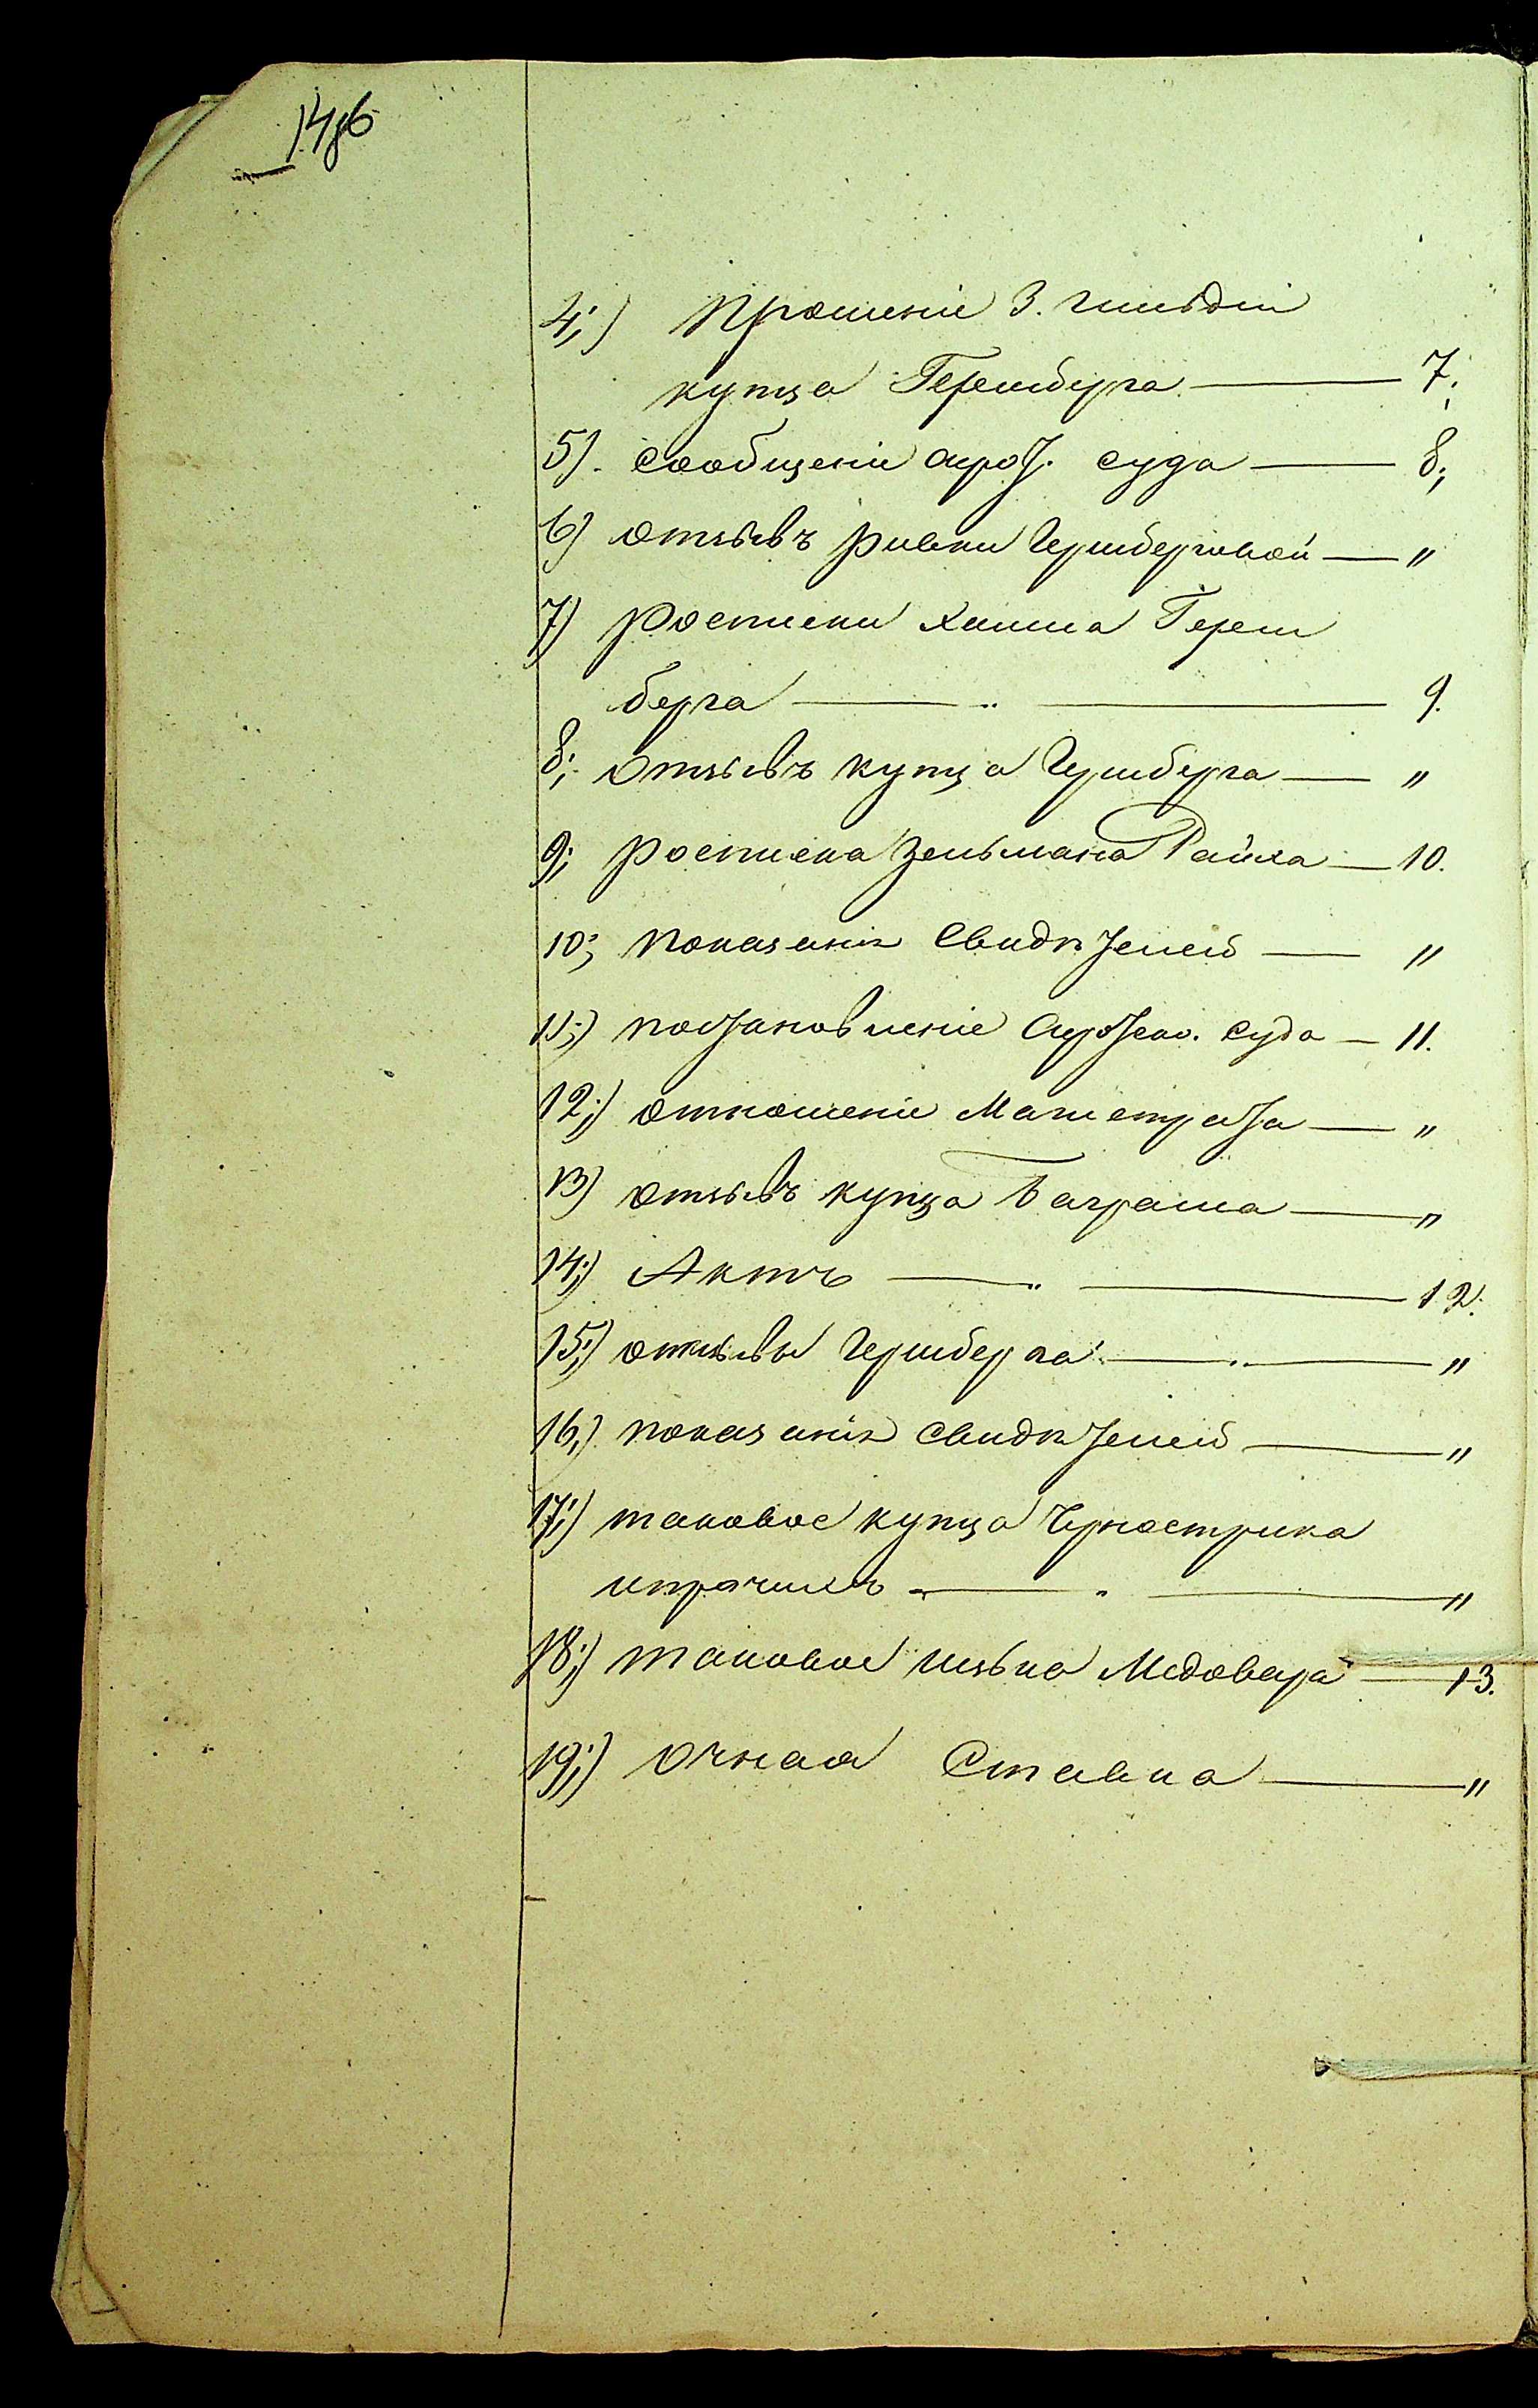 4;) Прошеніе 3. гильдіи
купца Гершберга — 7;
5). Сообщеніе сирот. суда — 8;
6) отзывъ Ривки Гершберговой — "
7) Росписки Хаима Герш
берга — " — 9.
8; отзывъ купца Гершберга — "
9; Росписка Зельмана Райха — 10.
10; показанія Свидѣтелей — "
11;) постановленіе Сиротско. Суда — 11.
12;) отношеніе Магистрата — "
13) отзывъ купца Баграша — "
14;) Актъ — " — 12.
15;) отзывы Гершберга — . — "
16,) показанія Свидѣтелей — "
17;) таковое купца Чернострика
ипрочихъ — " — "
18;) таковое Ицька Медовара — 13.
19;) Очная Ставка — "